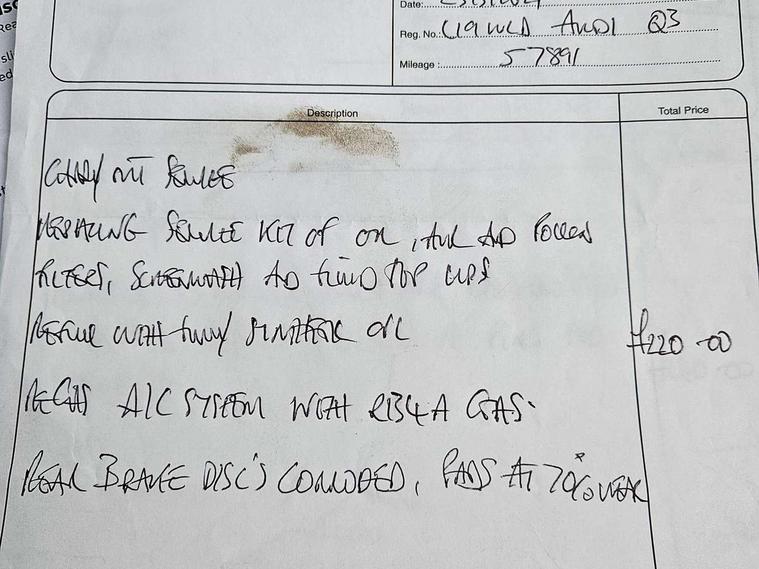 Date:
Reg. No.: AUDI Q3
Mileage: 57891
Description Total Price
CARRY OUT SERVICE
REPLACING SERVICE KIT OF OIL, AIR AD POLLEN
FILTERS, SCREENWASH AD FLUID TOP UPS
REFILL WITH FULLY SYNTHETIC OIL £220-00
REGAS A/C SYSTEM WITH R134A GAS.
REAR BRAKE DISC'S CORRODED, PADS AT 70% WEAR